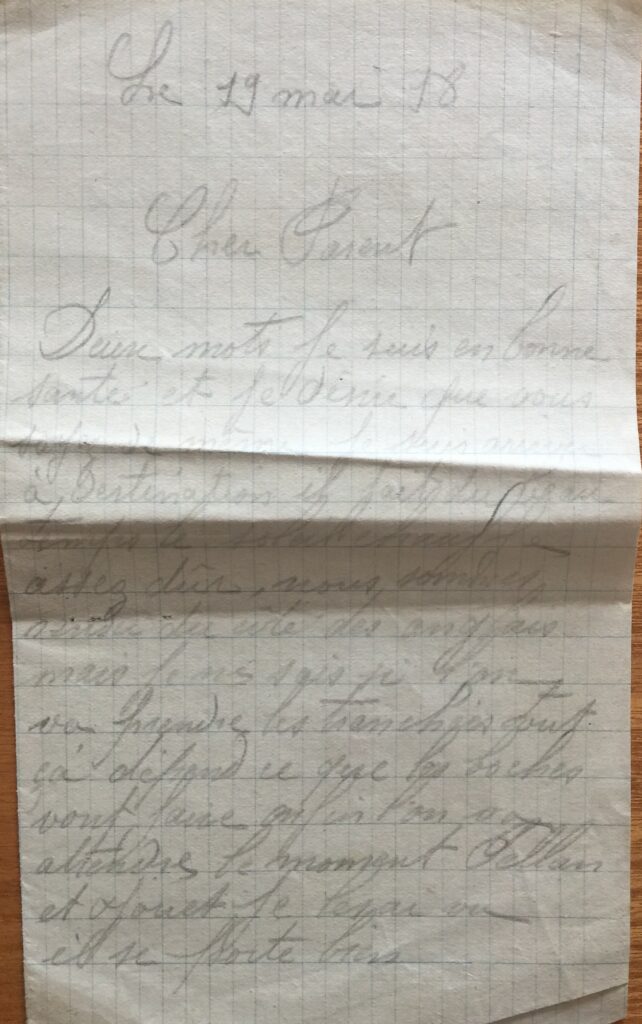 Le 19 mai 18
Cher Parent
Deux mots je suis en bonne
santé et je désire que vous
soyez de même je suis arrivé
à destination il fait du beau
temps le soleil chauffe
assez dûr, nous sommes
rendu du côté des anglais
mais je ne sais si l'on
va prendre les tranchées tout
çà dépend ce que les boches
vont faire enfin l'on va
attendre le moment
et je les ai vu
il se porte bien